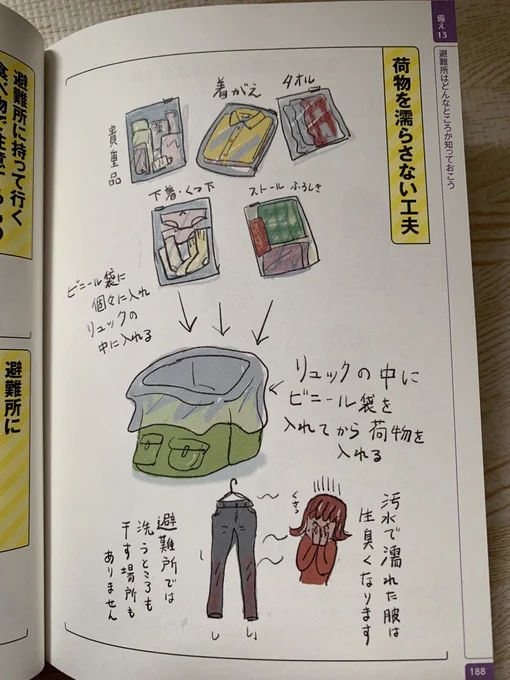 備え13
避難所はどんなところか知っておこう
荷物を濡らさない工夫
貴重品
着がえ
タオル
下着・くつ下
ストール ふろしき
ビニール袋に
個々に入れ
リュックの
中に入れる
リュックの中に
ビニール袋を
入れてから荷物を
入れる
汚水で濡れた服は
生臭くなります
くさっ
避難所では
洗うところも
干す場所も
ありません
188
避難所に持って行く
避難所に